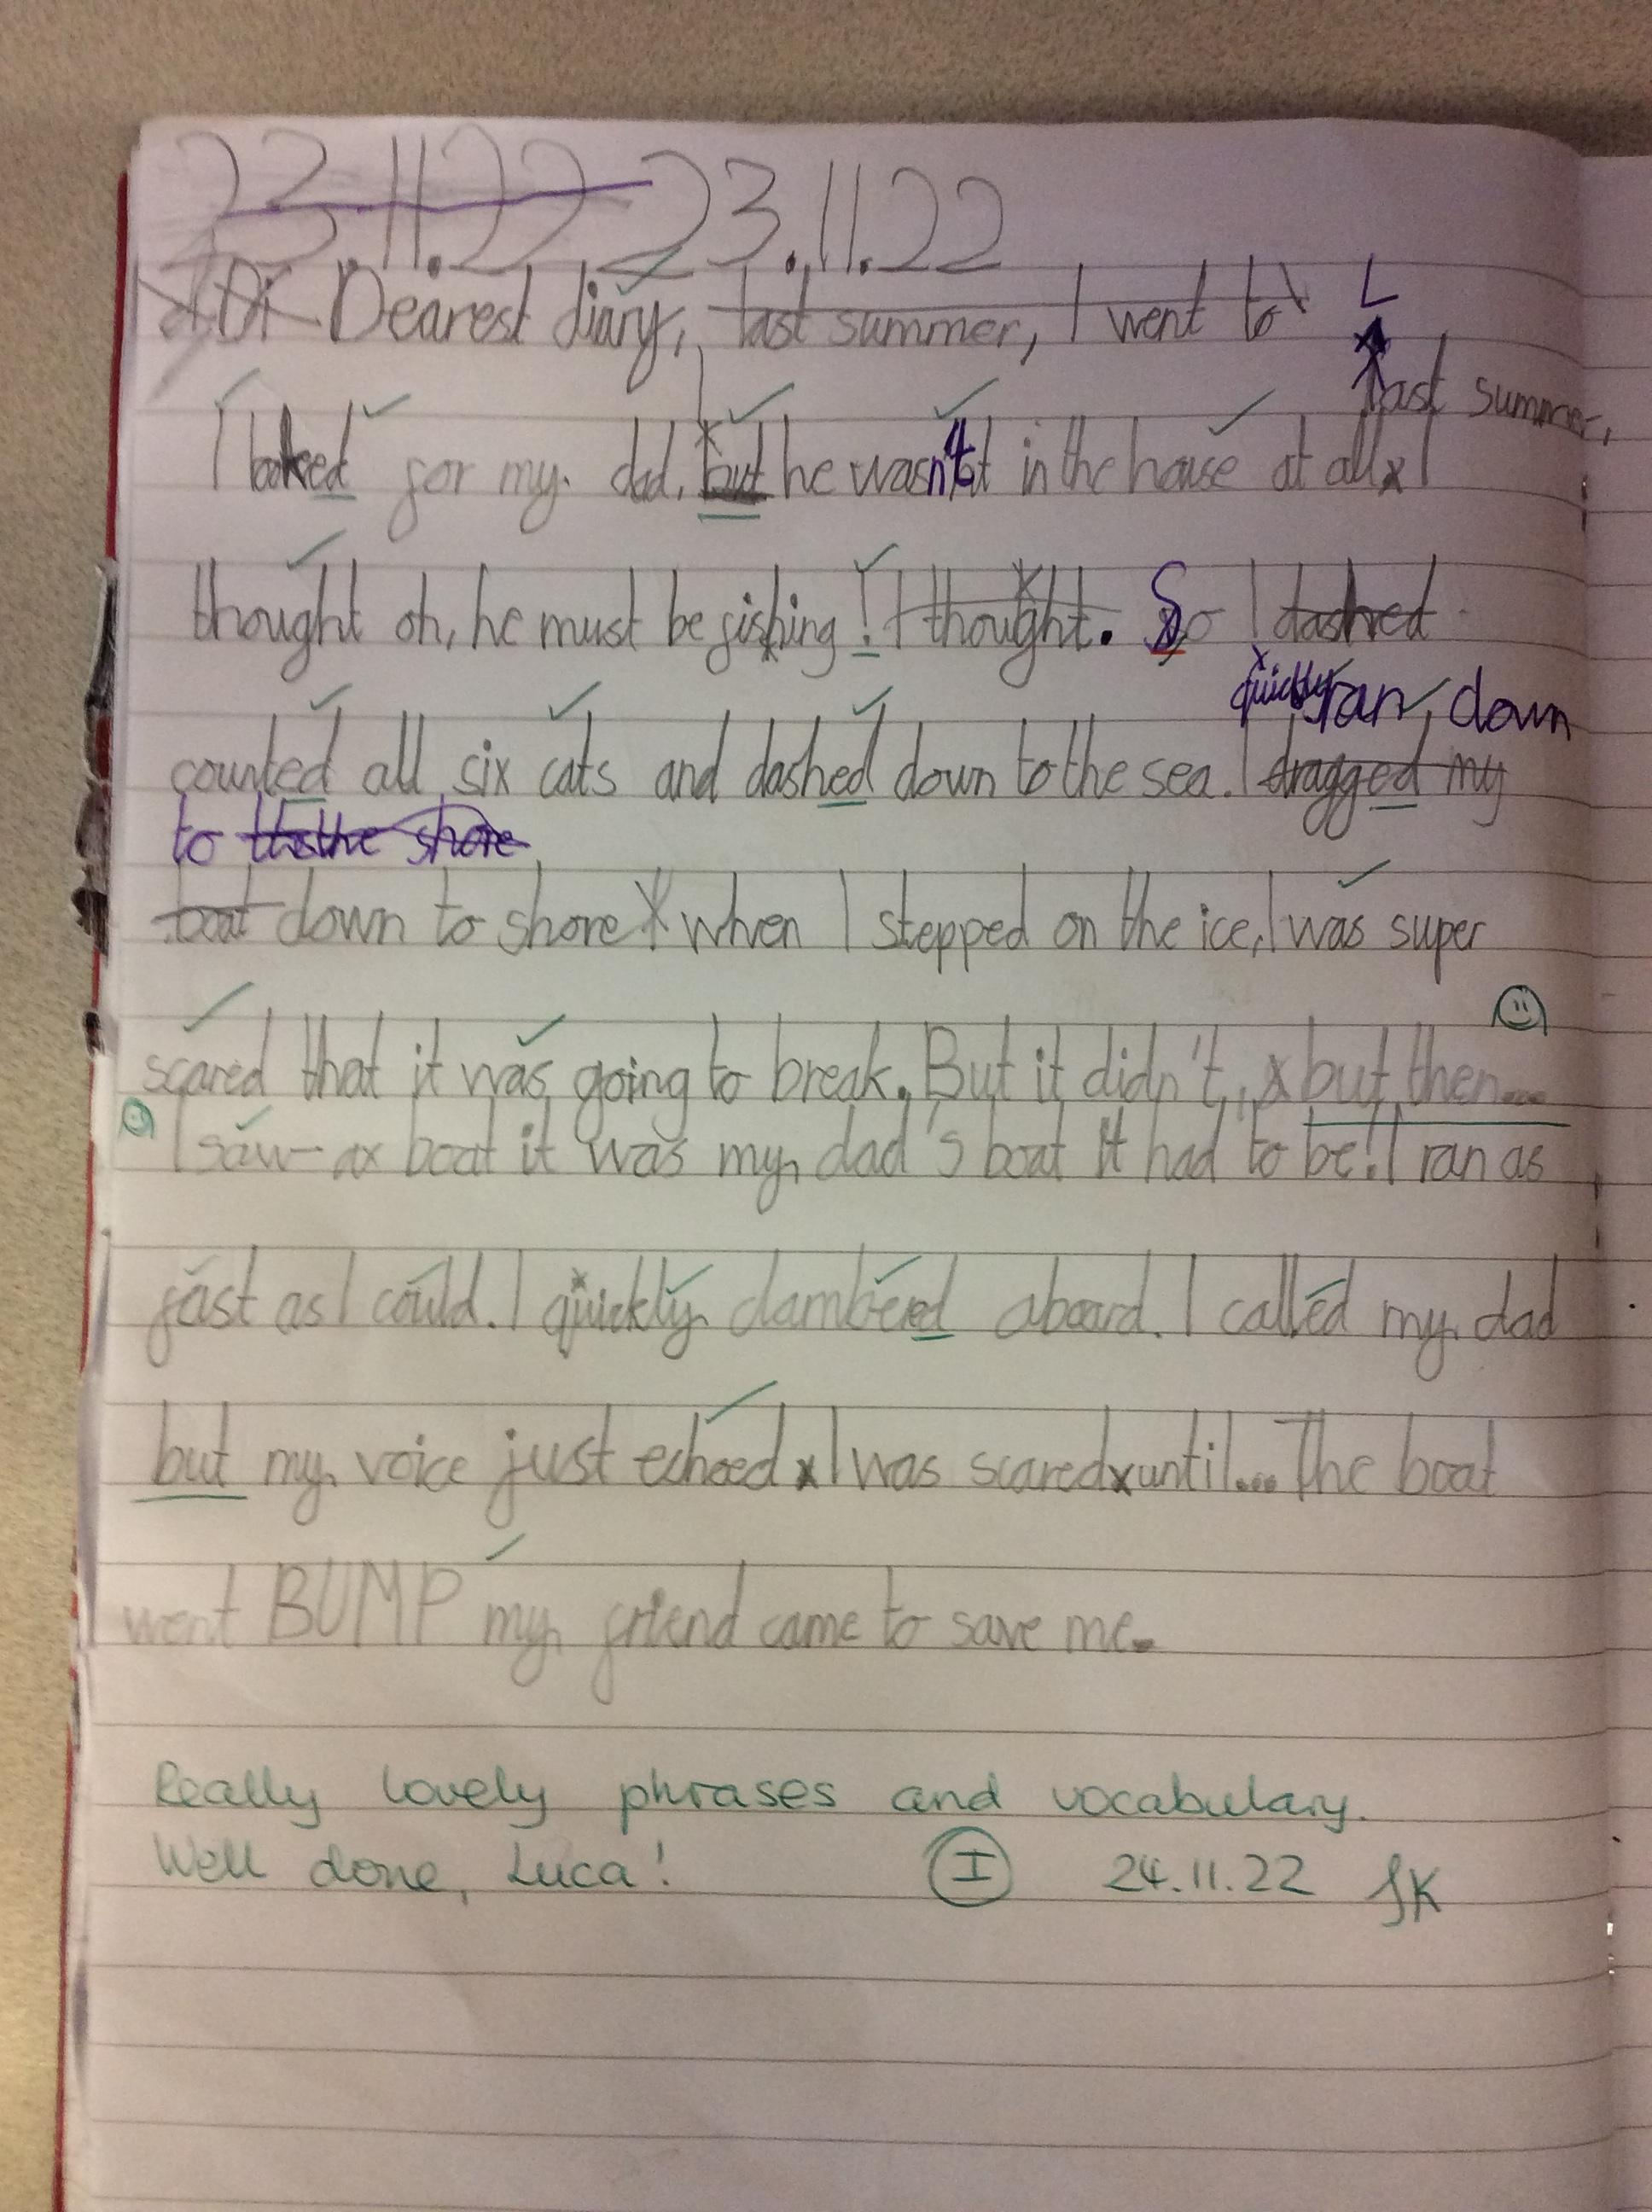 23.11.22 23.11.22
Dearest diary, last summer, I went to L
last summer,
I looked for my dad, but he wasn't in the house at all x I
thought oh, he must be fishing! I thought. So I dashed
quickly ran down
counted all six cats and dashed down to the sea. I dragged my
to the shore
boat down to shore x when I stepped on the ice, I was super
scared that it was going to break. But it didn't, x but then...
I saw a x boat it was my dad's boat it had to be! I ran as
fast as I could. I quickly clambered aboard. I called my dad
but my voice just echoed x I was scared x until... The boat
went BUMP my friend came to save me.
Really lovely phrases and vocabulary.
Well done, Luca! I 24.11.22 SK